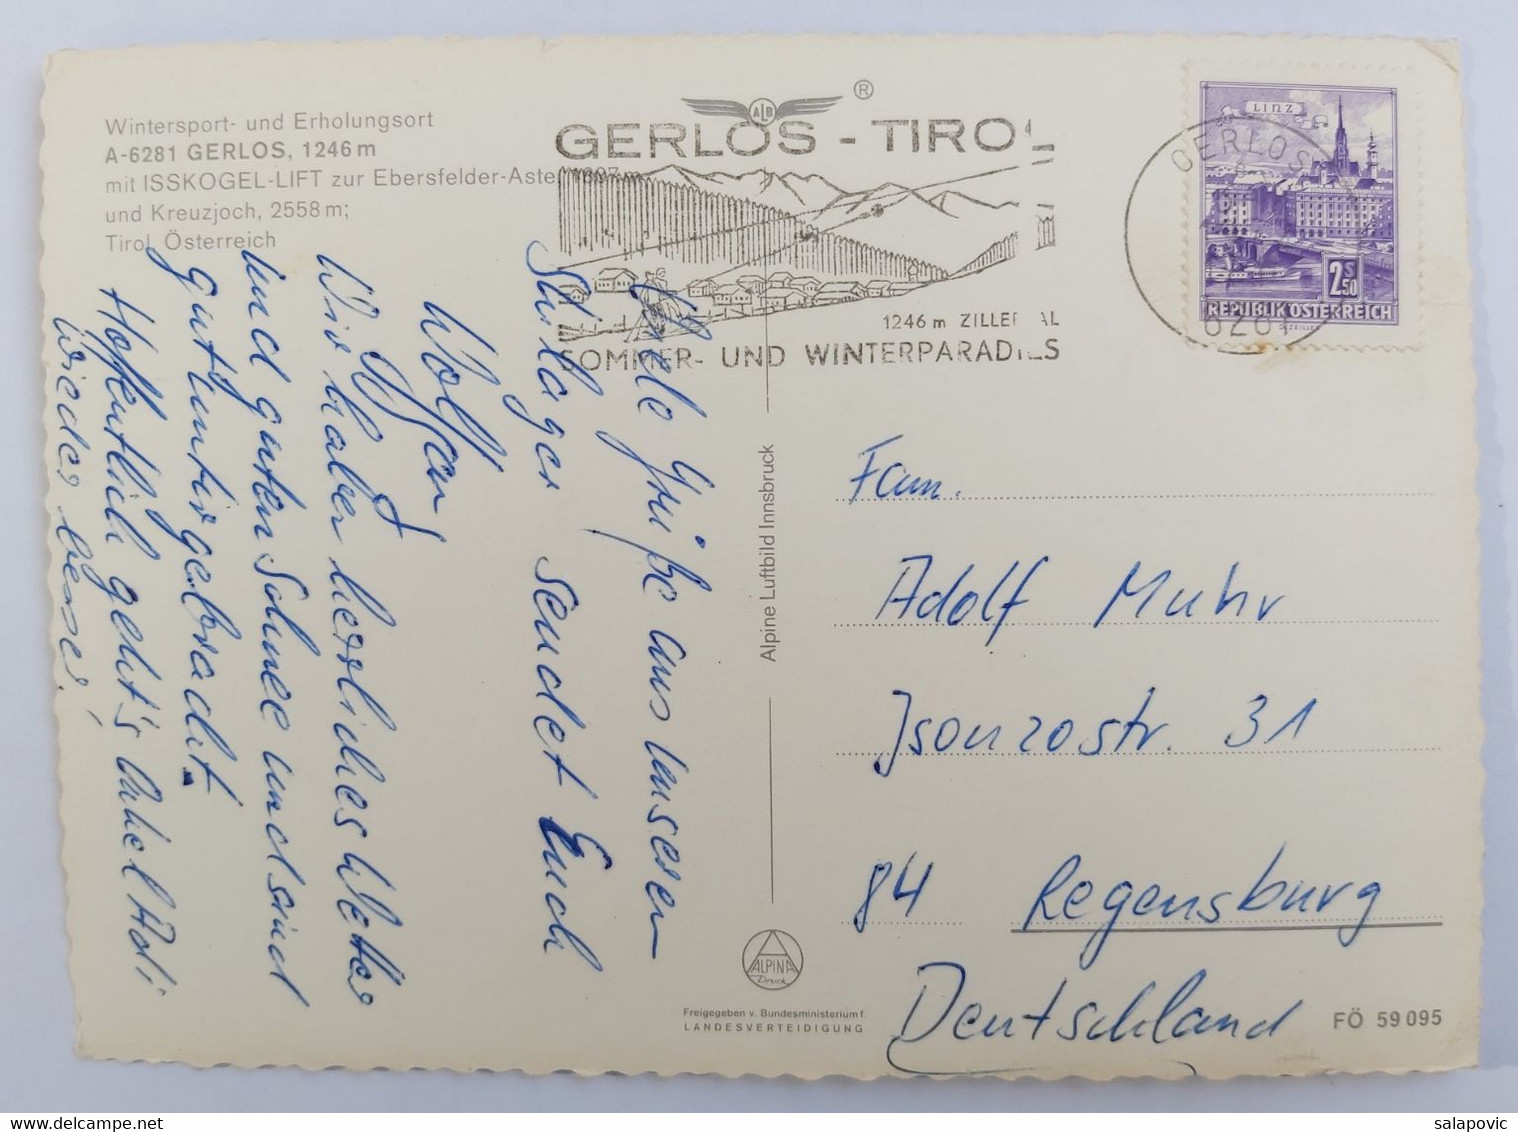 Wintersport- und Erholungsort
A-6281 GERLOS, 1246 m
mit ISSKOGEL-LIFT zur Ebersfelder-Aste
und Kreuzjoch, 2558 m;
Tirol, Österreich
ALB
®
GERLOS - TIROL
1246 m ZILLERTAL
SOMMER- UND WINTERPARADIES
GERLOS
6281
LINZ
2S50
REPUBLIK ÖSTERREICH
Viele Grüße aus unseren
Skilager sendet Euch
Wolfgang
Wir haben herrliches Wetter
und guten Schnee und sind
gut untergebracht.
Hoffentlich geht's Onkel Adi
wieder besser,
Alpine Luftbild Innsbruck
Fam.
Adolf Muhr
Isonzostr. 31
84 Regensburg
Deutschland
ALPINA
Druck
Freigegeben v. Bundesministerium f.
LANDESVERTEIDIGUNG
FÖ 59 095
salapovic